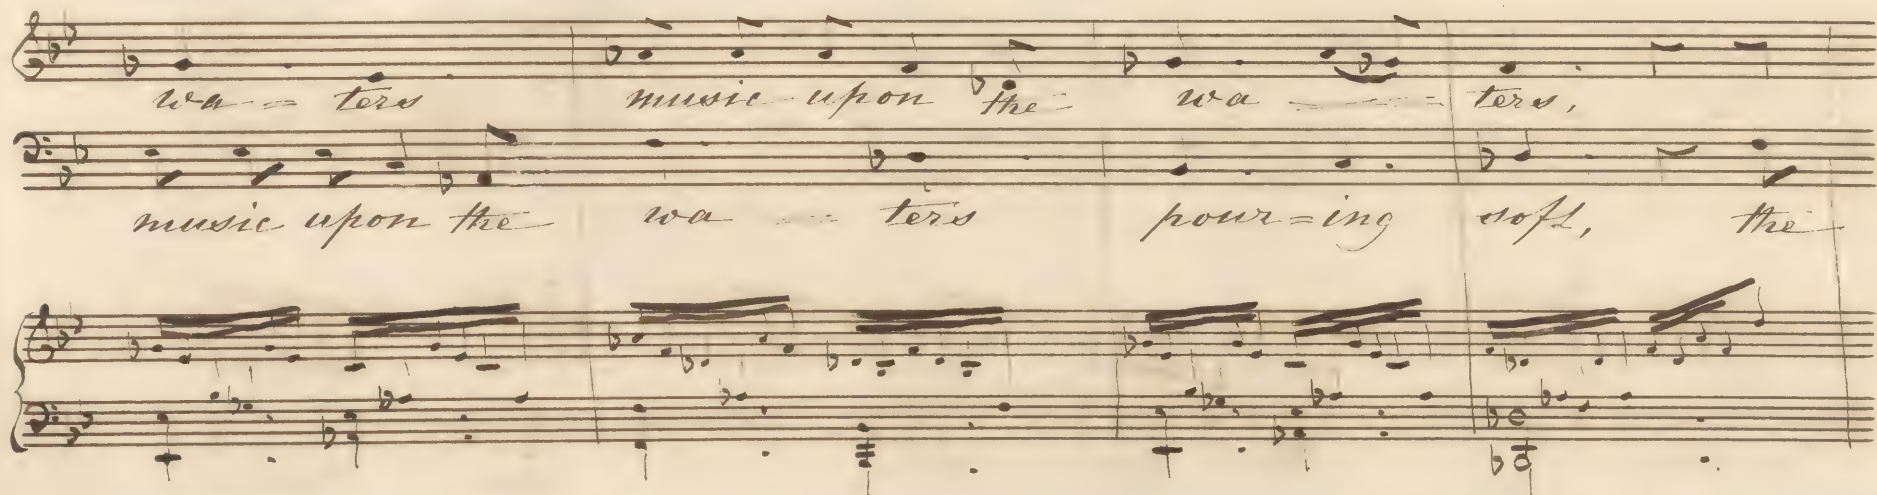 wa -- ters music upon the wa - - - ters,
music upon the wa - - ters pour=ing soft, the